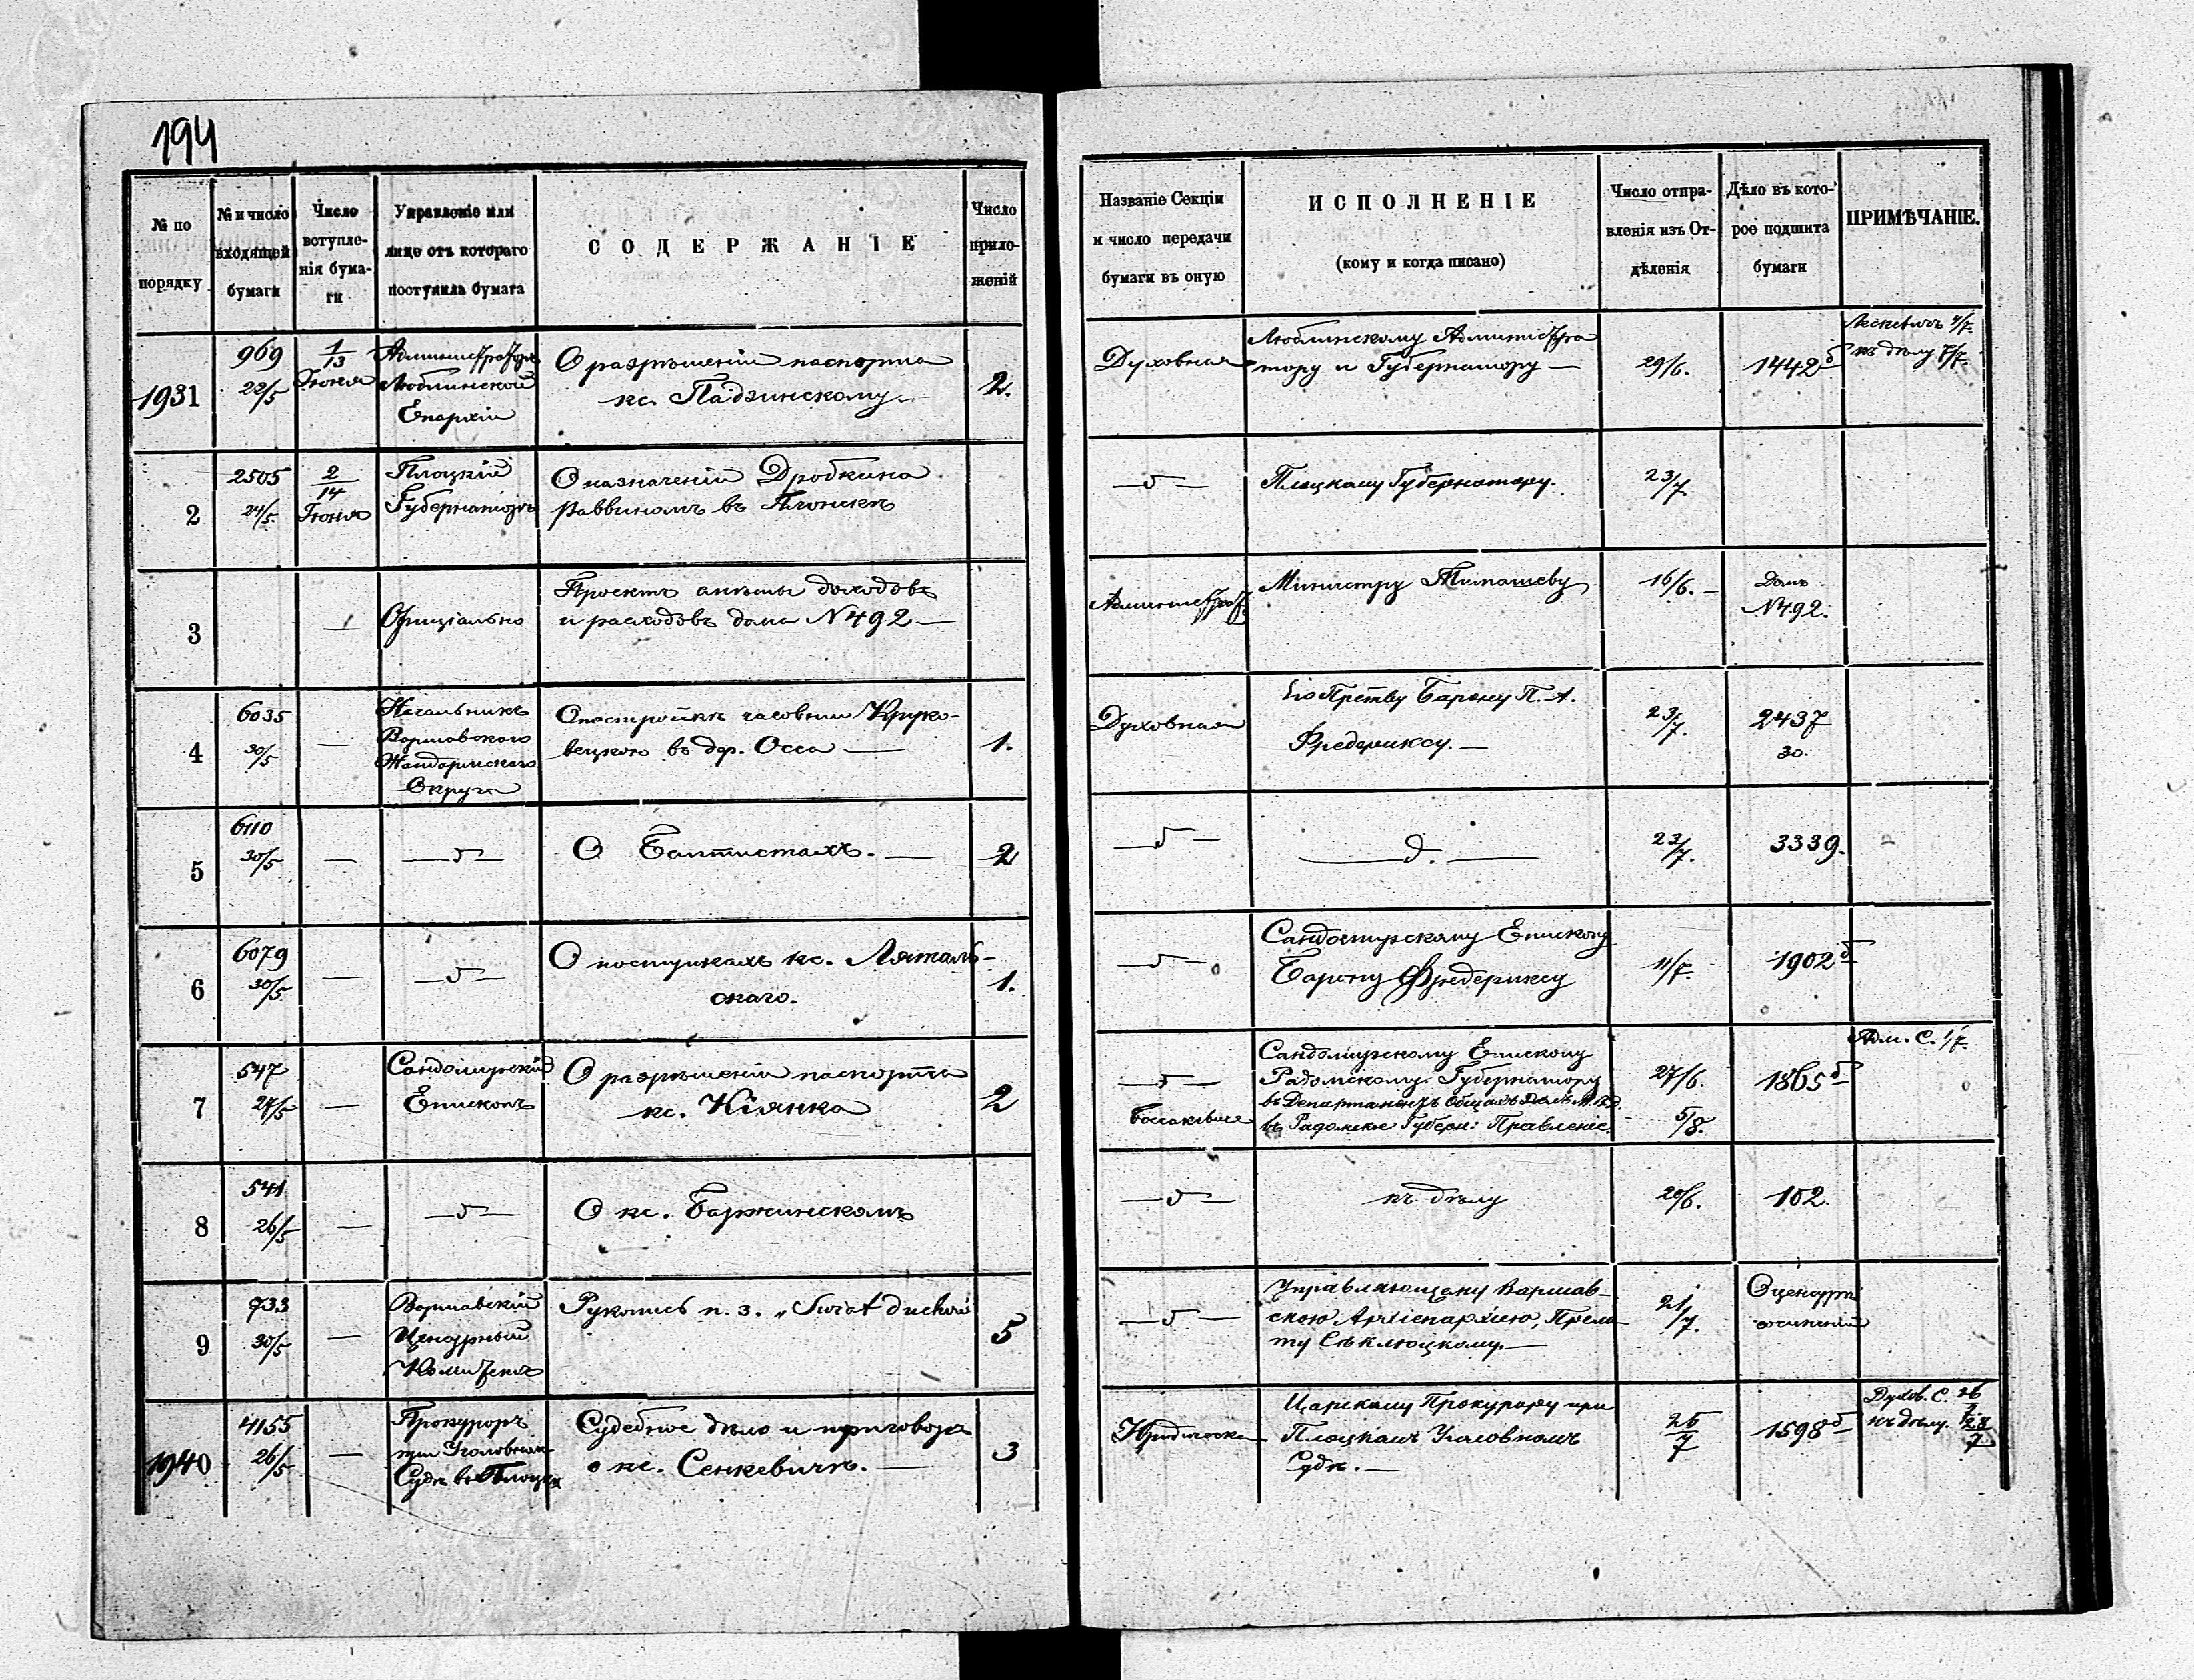 194
№ по порядку
№ и число входящей бумаги
Число вступле-
нія бума-
ги
Управленіе или
лице отъ котораго
поступила бумага
СОДЕРЖАНІЕ
Число
прило-
женій
Названіе Секціи
и число передачи
бумаги въ оную
ИСПОЛНЕНІЕ
(кому и когда писано)
Число отпра-
вленія изъ От-
дѣленія
Дѣло въ кото-
рое подшита
бумаги
ПРИМѢЧАНІЕ.
1931
969
22/5
1/13
Іюня
Администраторъ
Люблинской
Епархіи
О разрѣшеніи паспорта
кс. Падзинскому
2.
Духовная
Люблинскому Администра
тору и Губернатору —
29/6.
1442 б
4/7.
къ дѣлу 7/7.
2
2505
24/5.
2/14
Іюня
Плоцкій
Губернаторъ
О назначеніи Дробкина
раввиномъ въ Плонскѣ
— 5 —
Плоцкому Губернатору.
23/7
3
—
Офиціально
Проектъ смѣты доходовъ
и расходовъ дома N 492 —
Администрат.
Министру Тимашеву
16/6. —
Домъ
N 492.
4
6035
30/5
—
Начальникъ
Варшавскаго
Жандармскаго
Округа
О постройкѣ часовни Круко-
вецкою въ дер. Осса —
1.
Духовная
Его Прству Барону П. А.
Фредериксу. —
23/7.
2437
30.
5
6110
30/5
—
— 5 —
О Баптистахъ. —
2
— 5 —
— д. —
23/7.
3339.
6
6079
30/5
—
— 5 —
О поступкахъ кс. Ляталь-
скаго.
1.
— 5 —
Сандомирскому Епископу
Барону Фредериксу
11/7.
1902 б
7
547
24/5
—
Сандомирскій
Епископъ
О разрѣшеніи паспорта
кс. Кіянка
2
— 5 —
Сандомирскому Епископу
Радомскому Губернатору
въ Департаментъ Общихъ Дѣлъ М.В.Д.
въ Радомское Губерн: Правленіе.
27/6.
5/8.
1865 б
Адм. С. 1/7.
8
541
26/5
—
— 5 —
О кс. Баржинскомъ
— 5 —
къ дѣлу
20/6.
102.
9
933
30/5
—
Варшавскій
Цензурный
Комитетъ
Рукопись п. з. „Świat duchowy
5
— 5 —
Управляющему Варшав-
скою Архіепархіею, Прела-
ту Сѣклюцкому. —
21/7.
О цензурѣ
сочиненій
1940
4155
26/5
—
Прокуроръ
при Уголовномъ
Судѣ въ Плоцкѣ
Судебное дѣло и приговоръ
о кс. Сенкевичѣ. —
3
Юридическ.
Царскому Прокурору при
Плоцкомъ Уголовномъ
Судѣ. —
26/7
1598 б
Духов. С. 26/7
къ дѣлу. 28/7